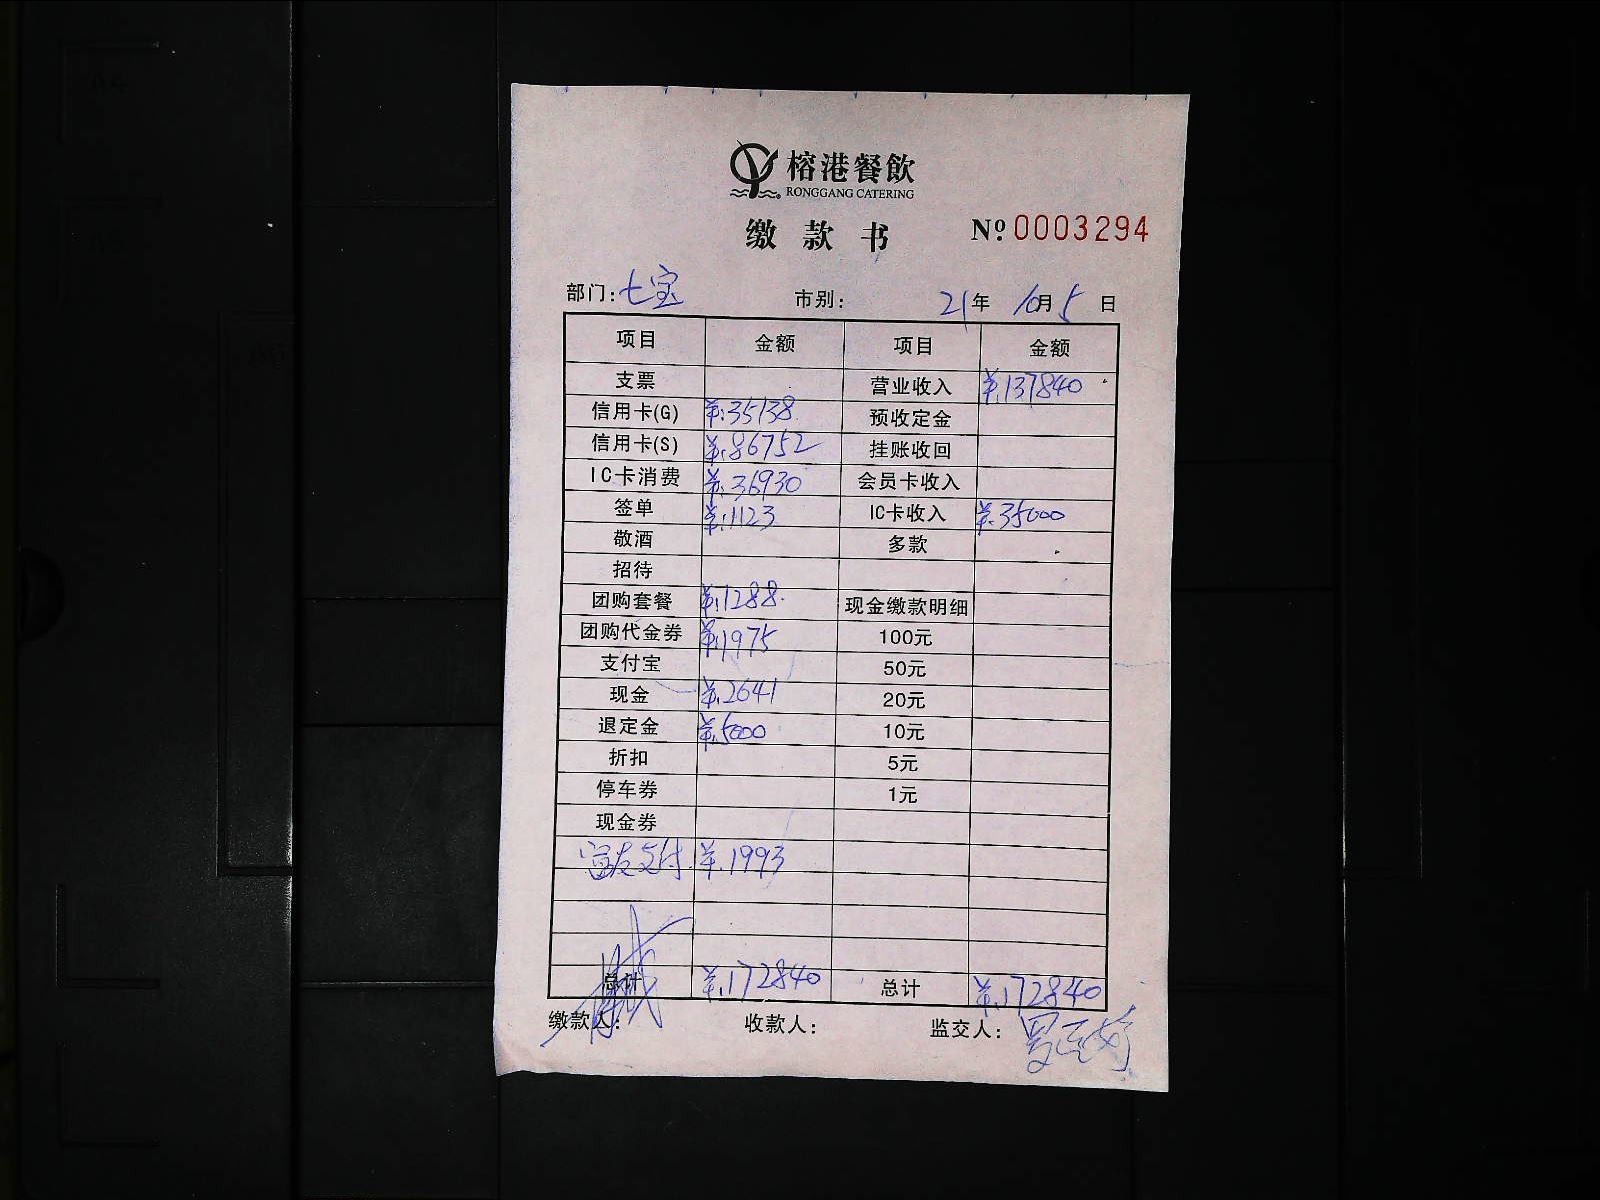 榕港餐飲
RONGGANG CATERING
缴款书 Nº 0003294
部门: 七宝 市别: 21年 10月 5日
项目 金额 项目 金额
支票 营业收入 ¥:137840
信用卡(G) ¥:35138 预收定金
信用卡(S) ¥:86752 挂账收回
IC卡消费 ¥:36930 会员卡收入
签单 ¥:1123 IC卡收入 ¥:35000
敬酒 多款
招待
团购套餐 ¥:1288 现金缴款明细
团购代金券 ¥:1975 100元
支付宝 50元
现金 ¥:2641 20元
退定金 ¥:5000 10元
折扣 5元
停车券 1元
现金券
支付 ¥:1993
总计 ¥:172840 总计 ¥:172840
缴款人: 收款人: 监交人: